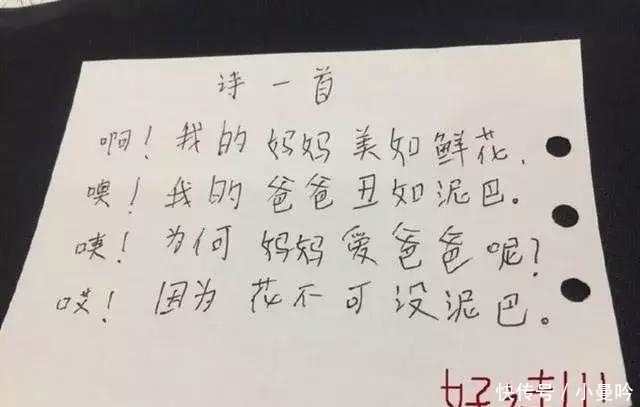 诗一首
啊！我的妈妈美如鲜花，
噢！我的爸爸丑如泥巴。
咦！为何妈妈爱爸爸呢？
哎！因为花不可没泥巴。
好
快传号／小曼吟